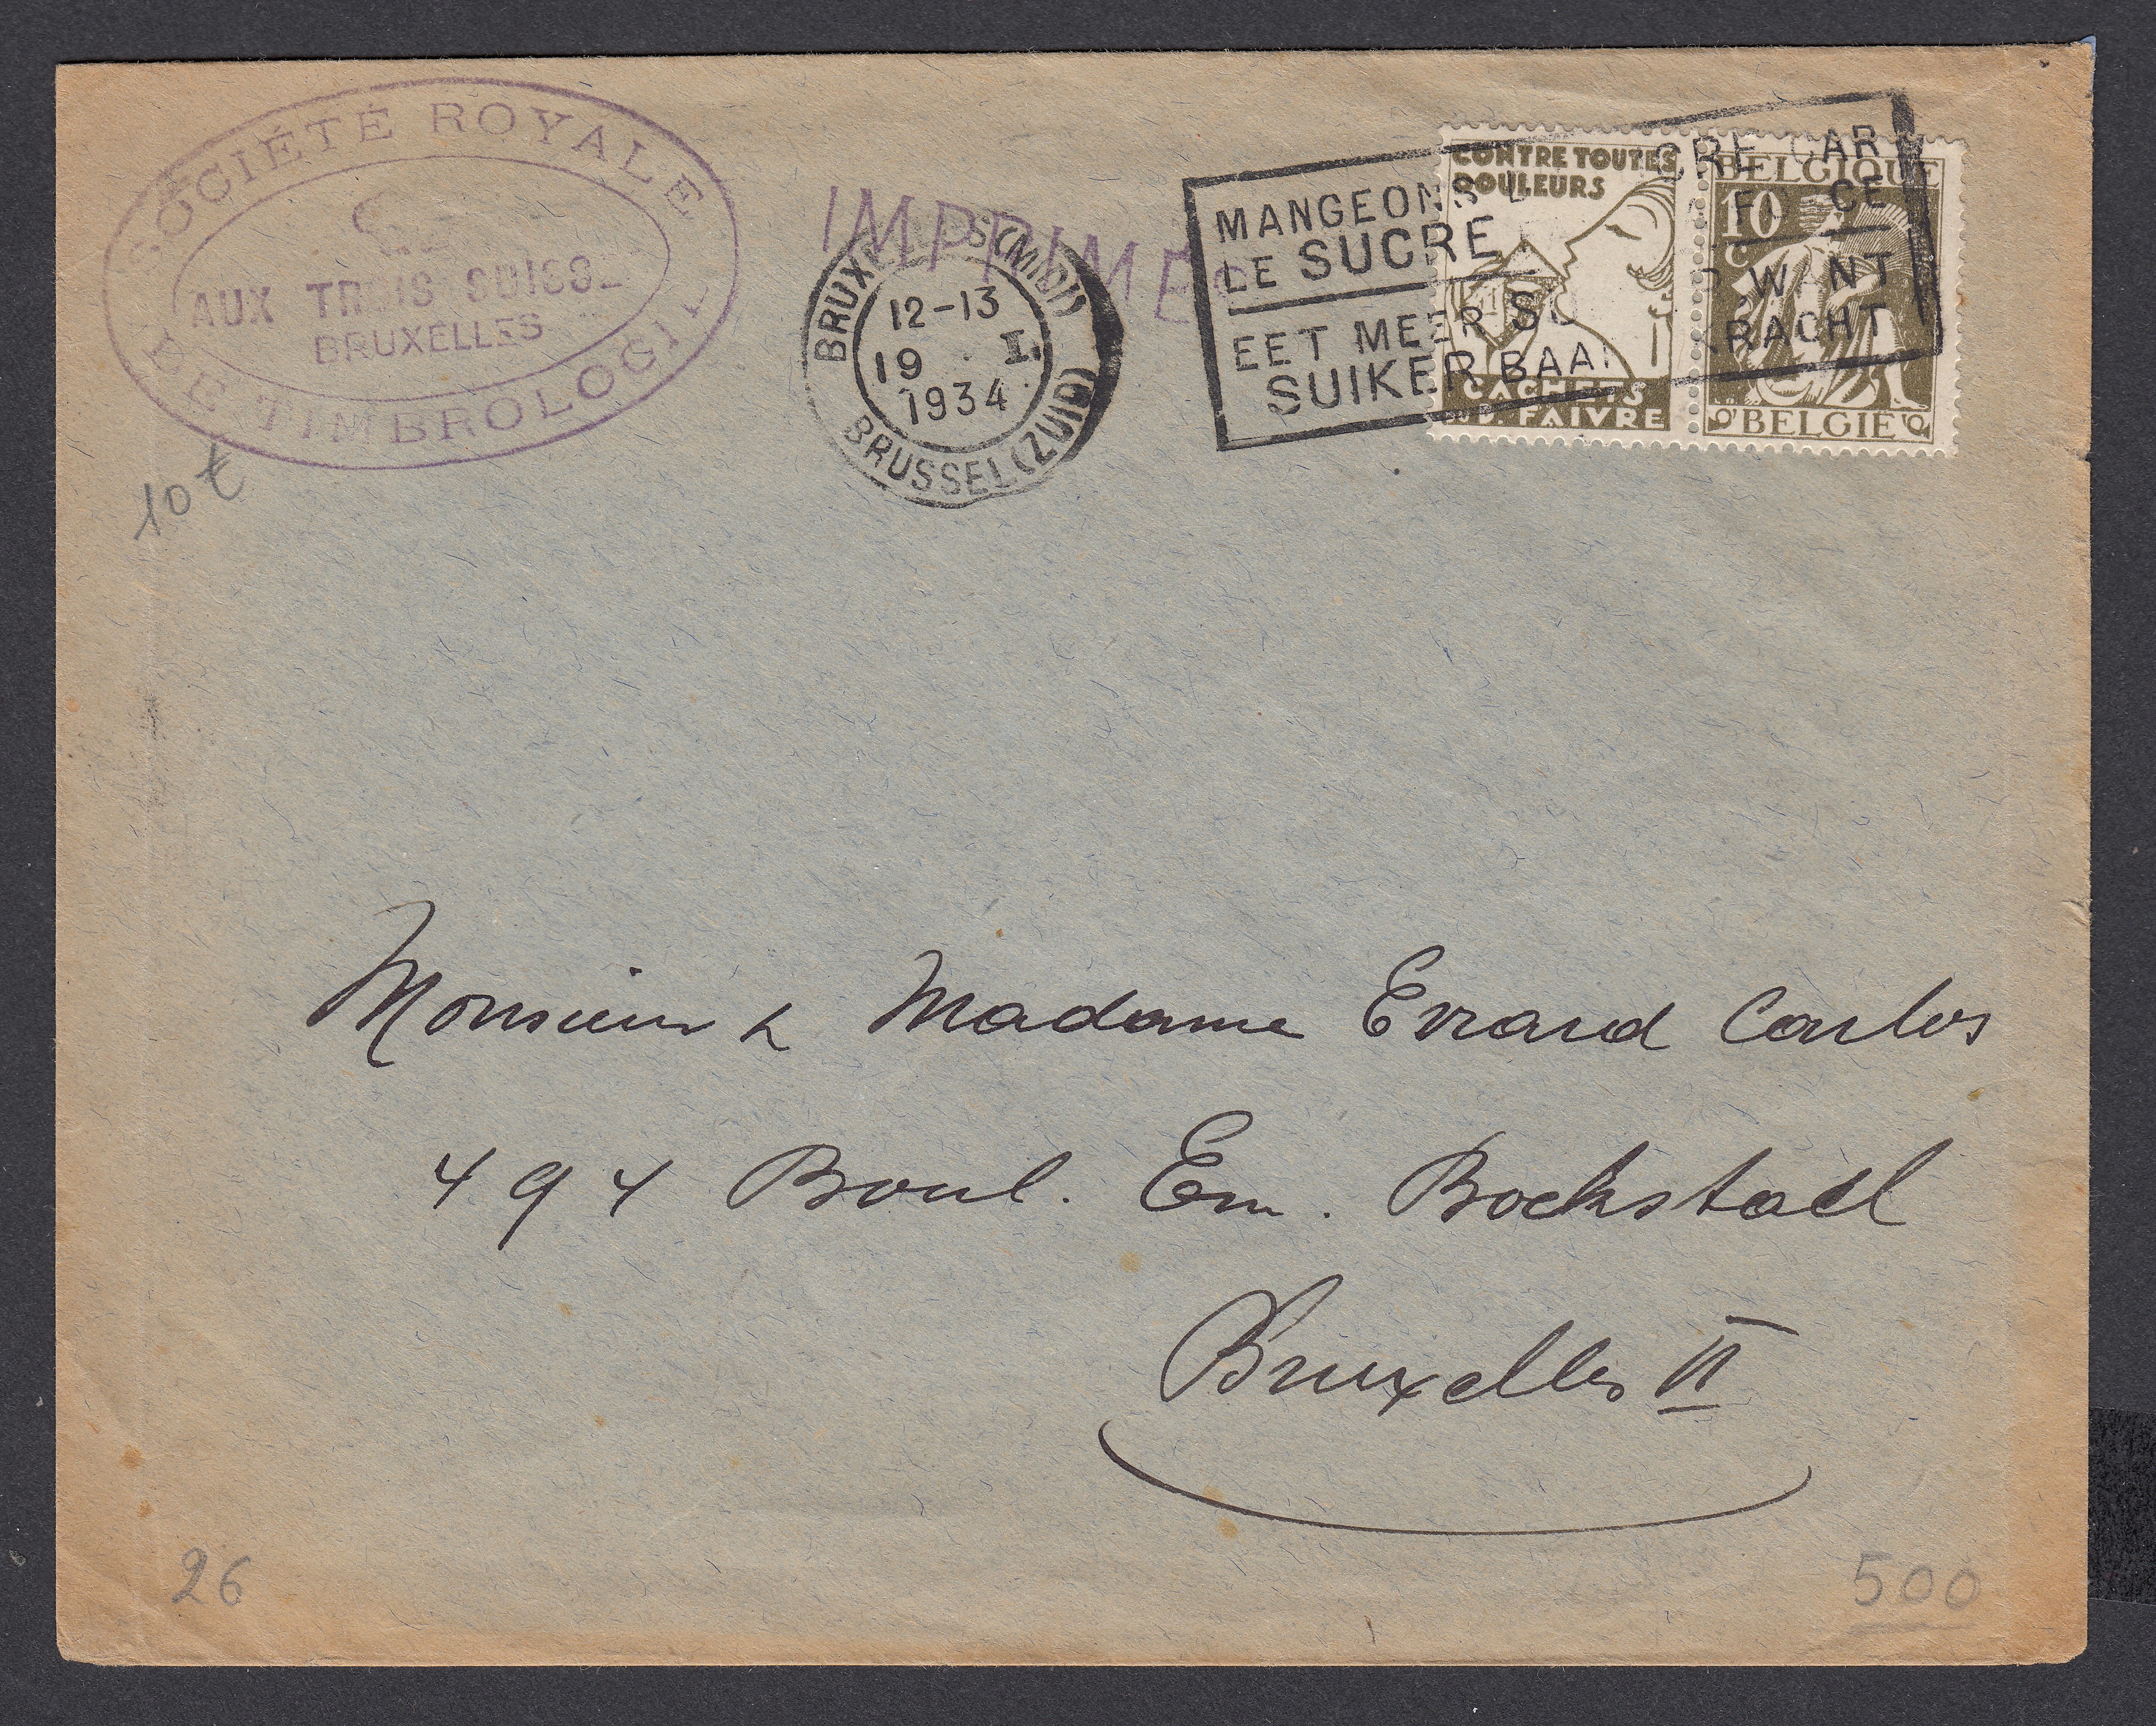 SOCIÉTÉ ROYALE
AUX TROIS SUISS
BRUXELLES
DE TIMBROLOGIE
10 €
IMPRIMÉS
BRUXELLES (MIDI)
12-13
19 I.
1934
BRUSSEL (ZUID)
MANGEONS DU SUCRE CAR
LE SUCRE FORCE
EET MEER SUIKER WANT
SUIKER BAART KRACHT
CONTRE TOUTES
DOULEURS
CACHETS
FAIVRE
BELGIQUE
10
C
BELGIË
Monsieur & Madame Evrard Carlos
494 Boul. Em. Bockstael
Bruxelles II
26
500